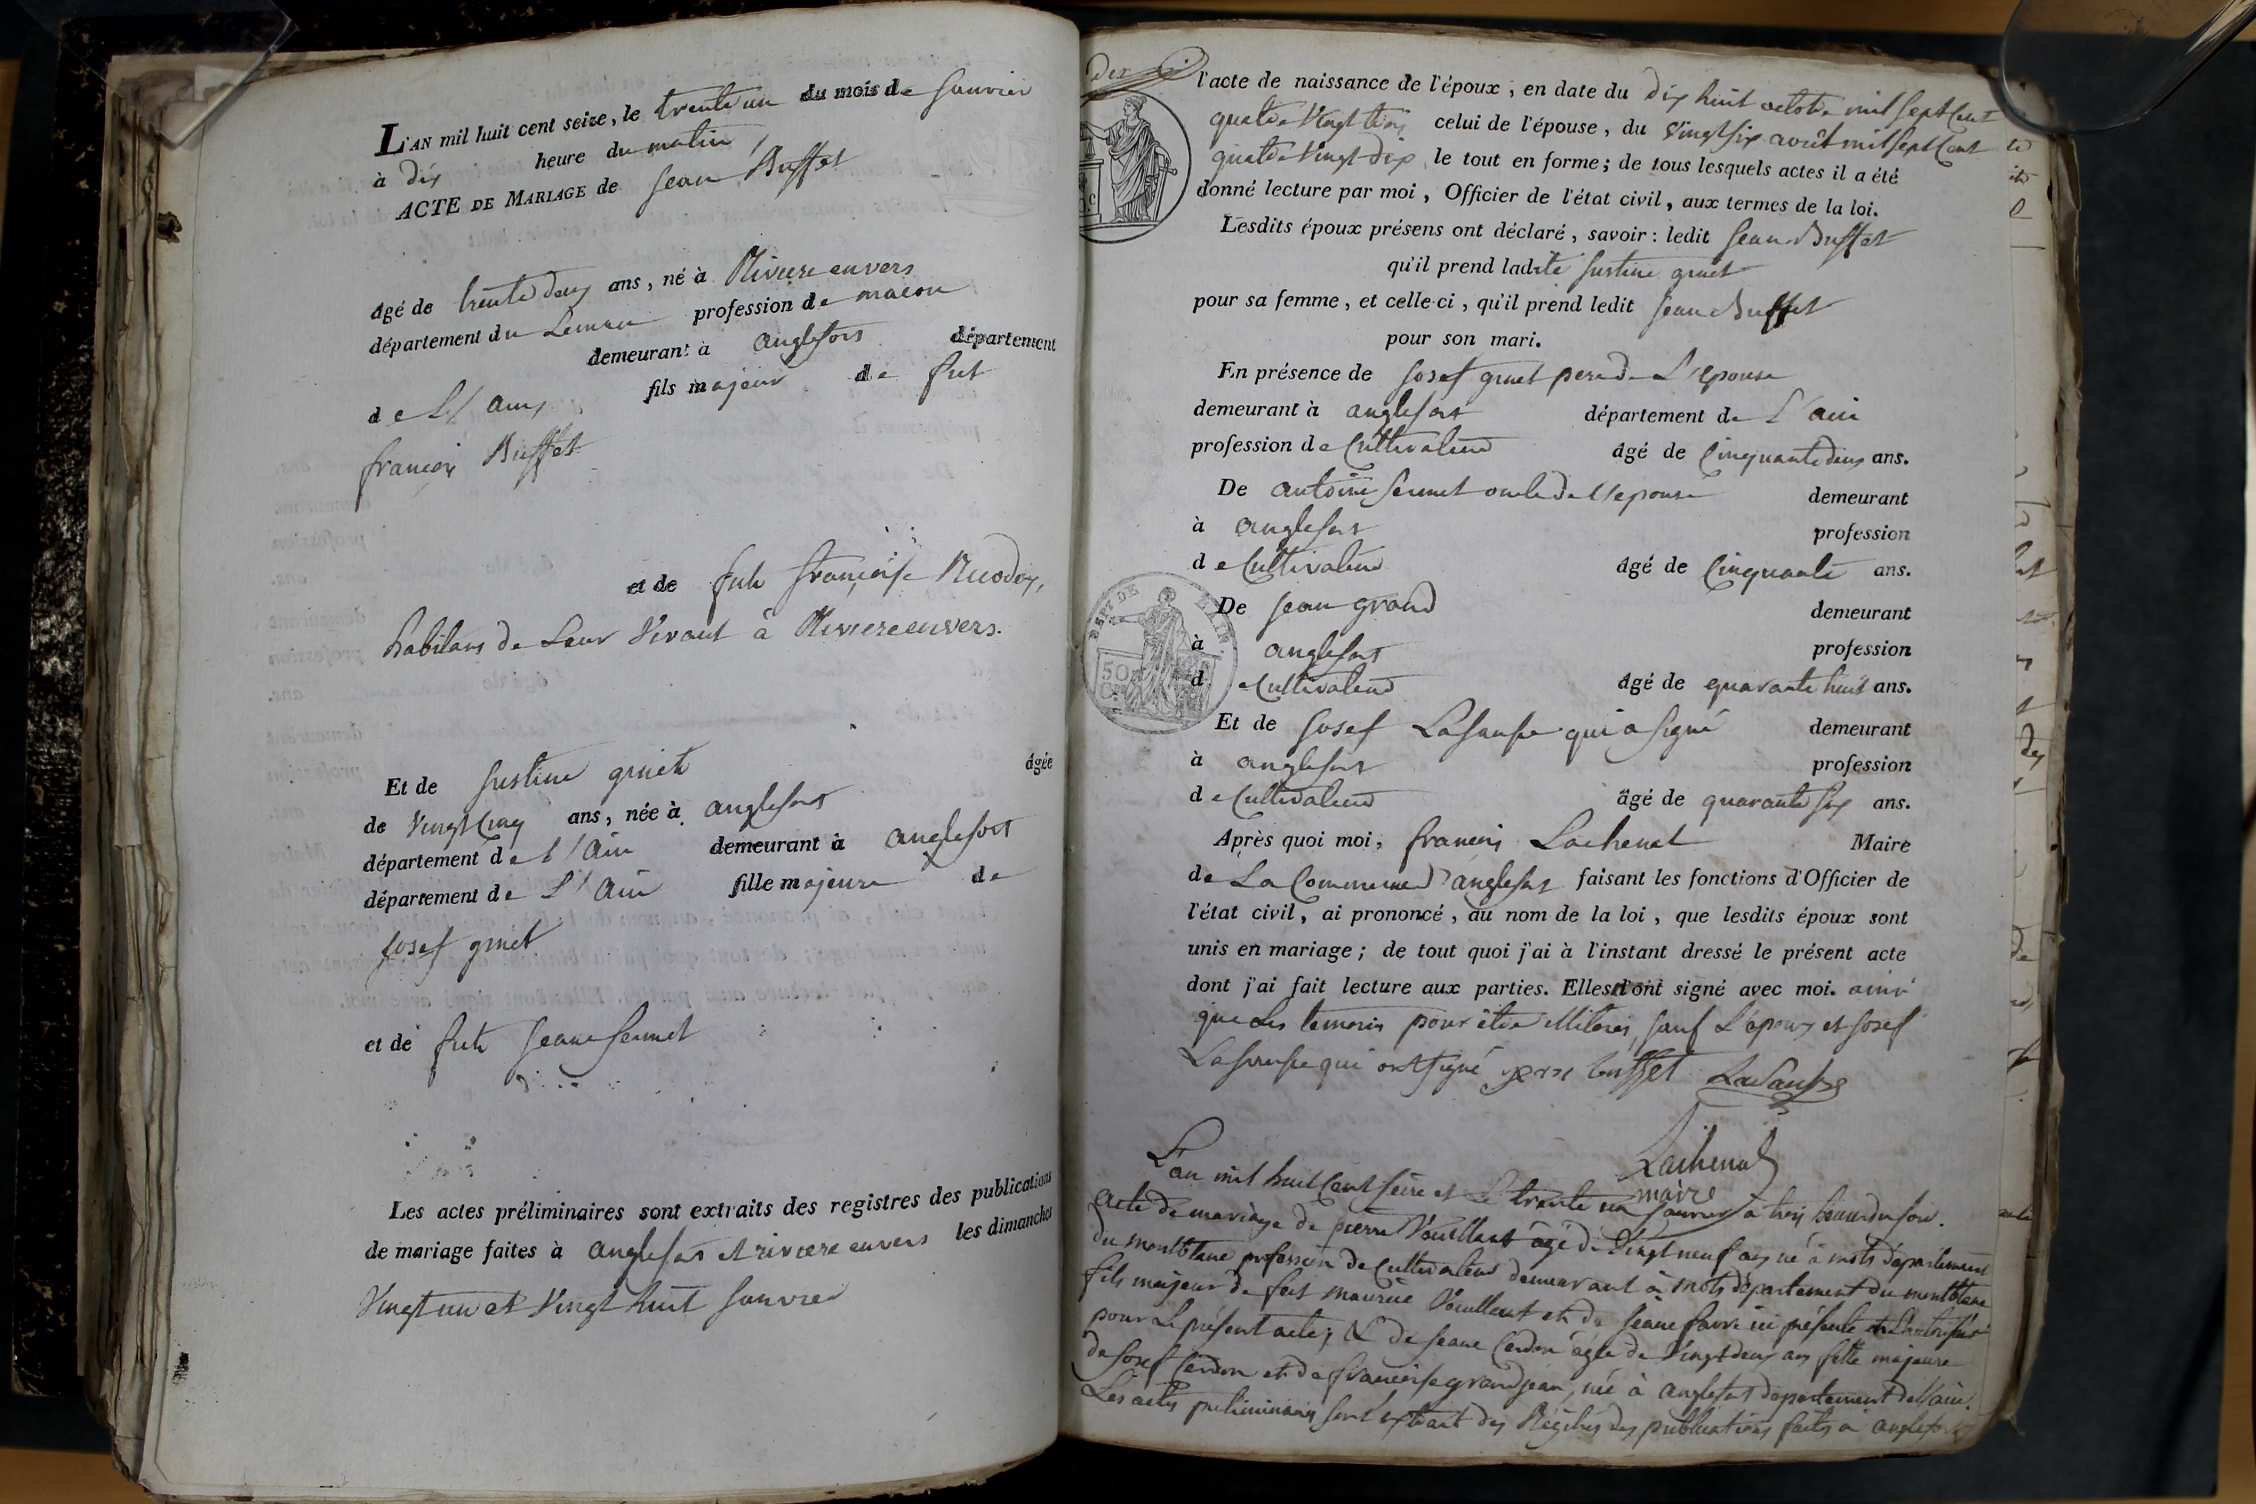 L'AN mil huit cent seize, le trente un du mois de Janvier
à dix heure du matin,
ACTE DE MARIAGE de Jean Buffet
âgé de trente deux ans, né à Riviere envers
département du Leman profession de macon
demeurant à anglefort département
de L'ain fils majeur de feut
françois Buffet
et de fute françoise Ruodex,
habitans de Leur Vivant à Riviere envers.
Et de Justine gruet âgée
de Vingt Cinq ans, née à anglefort
département de l'Ain demeurant à anglefort
département de L'Ain fille majeure de
Josef gruet
et de fute Jeane Sermet
Les actes préliminaires sont extraits des registres des publications
de mariage faites à anglefort et riviere envers les dimanches
Vingt un et Vingt huit Janvier
l'acte de naissance de l'époux, en date du dix huit octobre mil sept Cent
quatre Vingt trois celui de l'épouse, du Vingt six août mil sept Cent
quatre Vingt dix le tout en forme; de tous lesquels actes il a été
donné lecture par moi, Officier de l'état civil, aux termes de la loi.
Lesdits époux présens ont déclaré, savoir: ledit Jean Buffet
qu'il prend ladite Justine gruet
pour sa femme, et celle-ci, qu'il prend ledit Jean Buffet
pour son mari.
En présence de Josef gruet pere de L'epouse
demeurant à anglefort département de L'ain
profession de Cultivateur âgé de Cinquante deux ans.
De antoine Sermet oncle de l'epouse demeurant
à anglefort profession
de Cultivateur âgé de Cinquante ans.
De Jean grand demeurant
à anglefort profession
de Cultivateur âgé de quarante huit ans.
Et de Josef Lasauge qui a signé demeurant
à anglefort profession
de Cultivateur âgé de quarante six ans.
Après quoi moi, françois Lachenal Maire
de La Commune d'anglefort faisant les fonctions d'Officier de
l'état civil, ai prononcé, au nom de la loi, que lesdits époux sont
unis en mariage; de tout quoi j'ai à l'instant dressé le présent acte
dont j'ai fait lecture aux parties. Elles n'ont signé avec moi. ainsi
que Les temoins pour être illiteres, sauf L'epoux et Josef
qui ont signé buffet
Lachenal
maire
L'an mil huit Cent seize et Le trente un Janvier a trois heures du soir.
acte de mariage de pierre Vouillant âgé de Vingt neuf ans né à mots département
du montblanc profession de Cultivateur demeurant à mots département du montblanc
fils majeur de feut maurice Vouillant et de Jeane favre ici présente
pour Le présent acte; Et de Jeane Cerdon âgée de Vingt deux ans fille majeure
de Josef Cerdon et de françoise grandjean, née à anglefort département de l'ain.
Les actes preliminaires sont extrait des Régitres des publications faites a anglefort